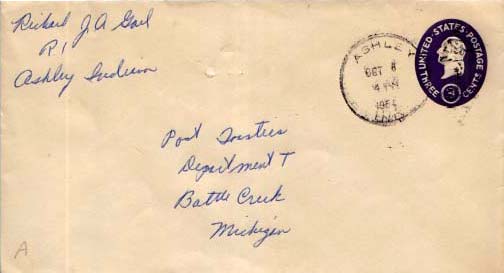 Richard J. A. Gael
R. 1
Ashley Indiana
ASHLEY
OCT 8
4 PM
UNITED·STATES·POSTAGE
THREE CENTS
Post Toasties
Department T
Battle Creek
Michigan
A